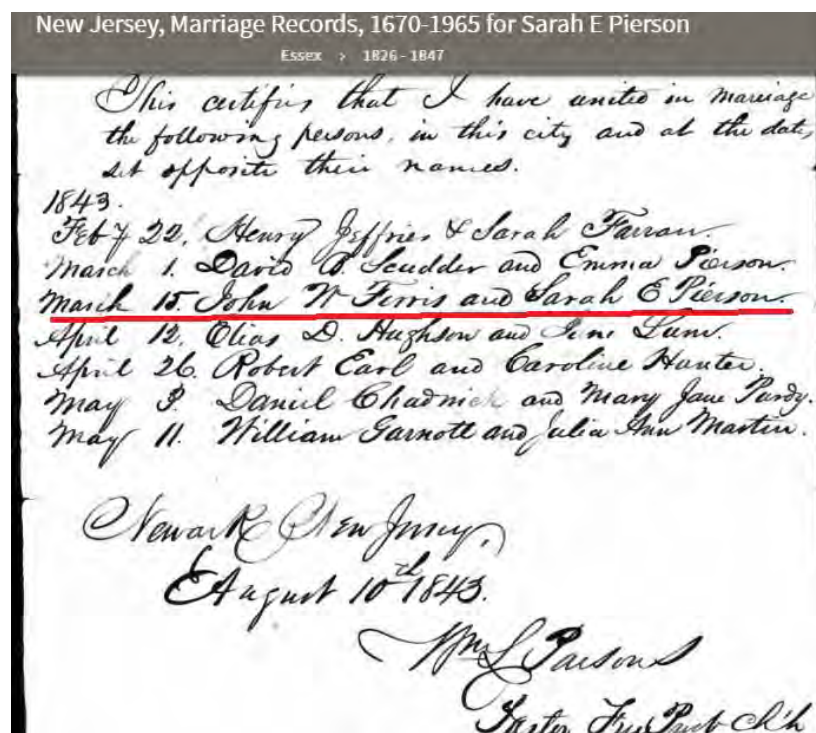 New Jersey, Marriage Records, 1670-1965 for Sarah E Pierson
Essex > 1826-1847
This certifies that I have united in marriage
the following persons, in this city and at the date,
set opposite their names.
1843.
Feby 22, Henry Jeffries & Sarah Farran.
March 1. David B. Scudder and Emma Pierson.
March 15. John W Ferris and Sarah E Pierson.
April 12. Elias D. Hughson and Lum.
April 26. Robert Earl and Caroline Hunter.
May 3. Daniel Chadnick and Mary Jane Purdy.
May 11. William Garnott and Julia Ann Martin.
Newark New Jersey,
August 10th 1843.
Wm L Parsons
Pastor Free Presb Ch'h